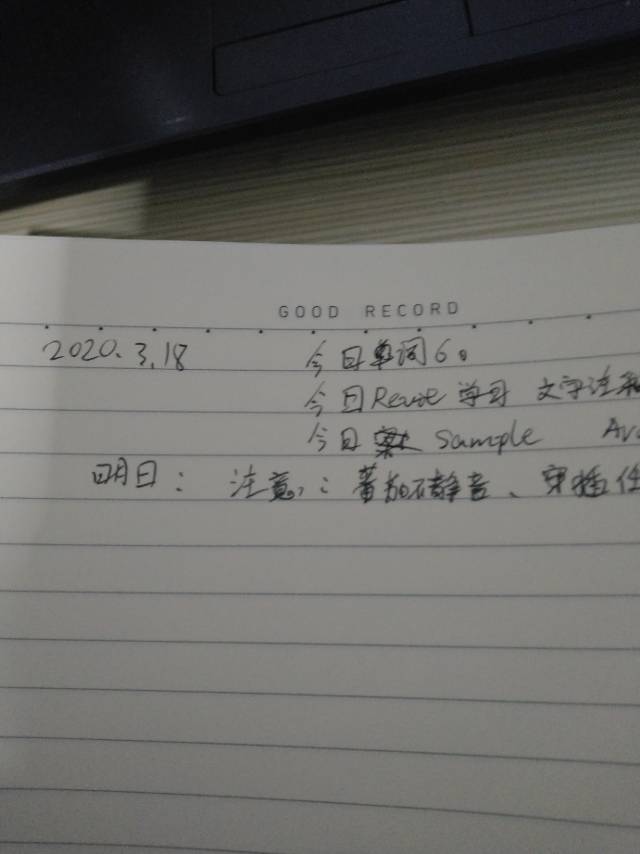 GOOD RECORD
2020.3.18 今日单词60
今日Revit 学习 文字注释
今日 Sample
明日: 注意: 番茄石静音、穿插任